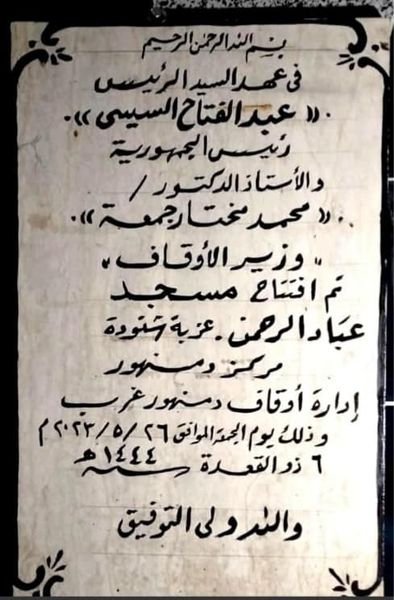 بسم الله الرحمن الرحيم
فى عهد السيد الرئيس
« عبد الفتاح السيسى »
رئيس الجمهورية
والأستاذ الدكتور /
« محمد مختار جمعة »
" وزير الأوقاف "
تم افتتاح مسجد
عباد الرحمن . عزبة شنودة
مركز دمنهور
إدارة أوقاف دمنهور غرب
وذلك يوم الجمعة الموافق ٢٦ / ٥ / ٢٠٢٣ م
٦ ذو القعدة سنة ١٤٤٤ هـ
والله ولى التوفيق